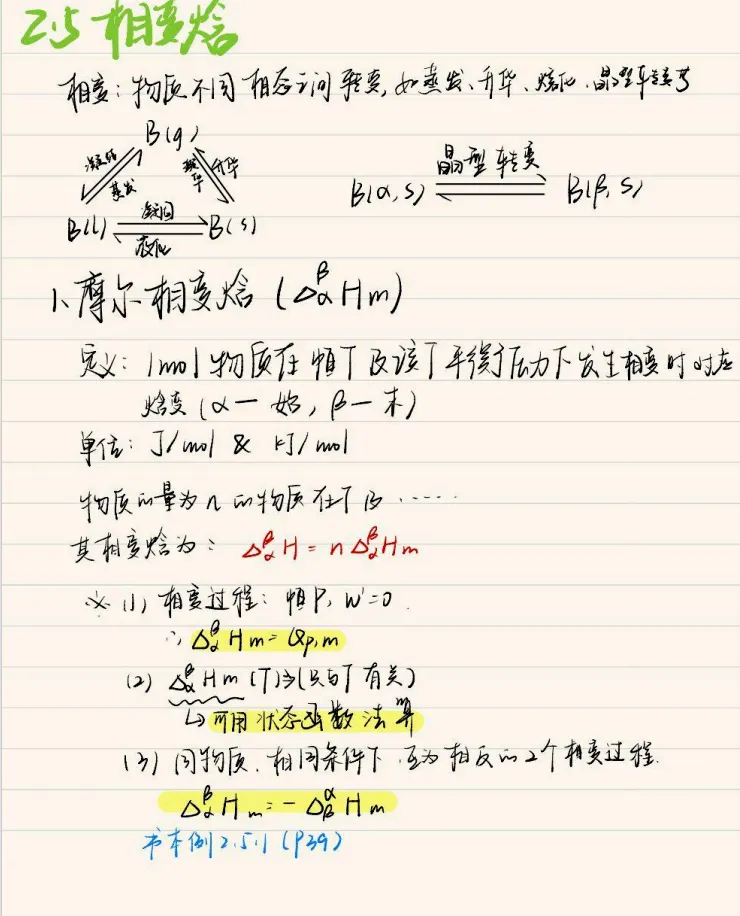 2.5 相变焓
相变：物质不同相态之间转变，如蒸发、升华、熔化、晶型转变等
B(g)
凝结
蒸发
凝华
升华
B(l) 凝固 B(s)
液化
B(α,s) 晶型转变 B(β,s)
1、摩尔相变焓（Δ_α^β Hm）
定义：1mol物质在恒T及该T平衡压力下发生相变时对应
焓变（α—始，β—末）
单位：J/mol & kJ/mol
物质的量为n的物质在T及······
其相变焓为：Δ_α^β H = nΔ_α^β Hm
※ (1) 相变过程：恒P，W'=0.
∴ Δ_α^β Hm = Qp,m
(2) Δ_α^β Hm (T) (只与T有关)
↳可用状态函数法算
(3) 同物质、相同条件下，互为相反的2个相变过程.
Δ_α^β Hm = -Δ_β^α Hm
书本例2.5.1 (P39)